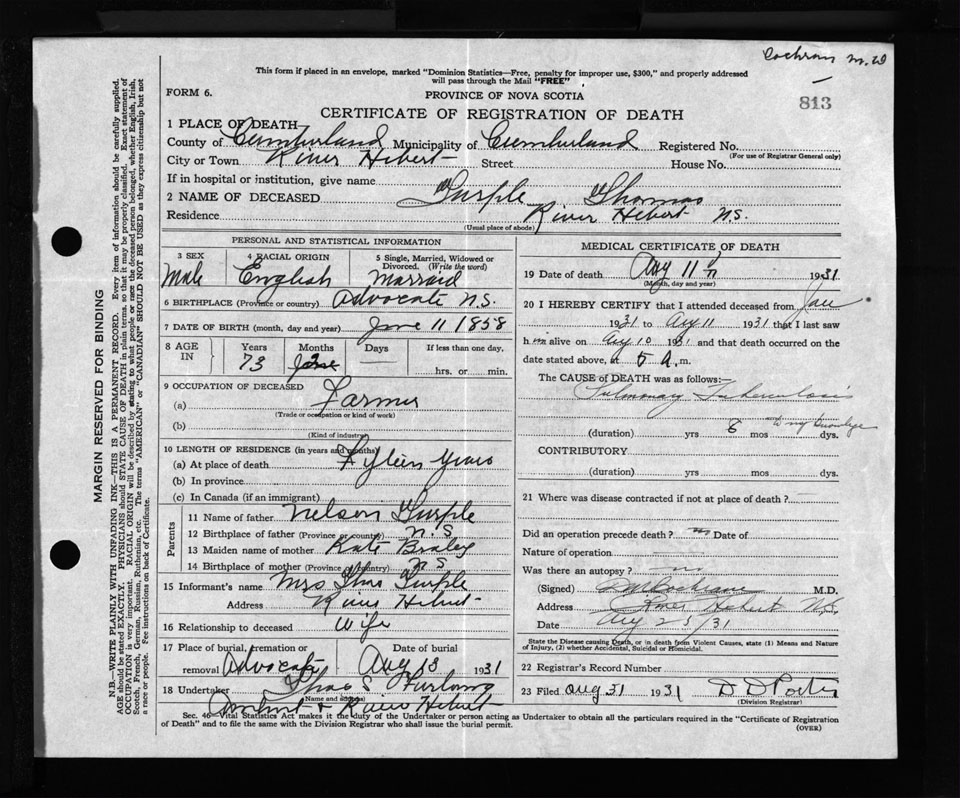 Cochran M.D
813
This form if placed in an envelope, marked "Dominion Statistics—Free, penalty for improper use, $300," and properly addressed
will pass through the Mail "FREE"
FORM 6.
PROVINCE OF NOVA SCOTIA
CERTIFICATE OF REGISTRATION OF DEATH
1 PLACE OF DEATH
County of Cumberland Municipality of Cumberland Registered No.
(For use of Registrar General only)
City or Town River Hebert Street House No.
If in hospital or institution, give name
2 NAME OF DECEASED Turple Thomas
Residence River Hebert N.S.
(Usual place of abode)
PERSONAL AND STATISTICAL INFORMATION
3 SEX
Male
4 RACIAL ORIGIN
English
5 Single, Married, Widowed or
Divorced. (Write the word)
Marraid
6 BIRTHPLACE (Province or country) Advocate N.S.
7 DATE OF BIRTH (month, day and year) June 11 1858
8 AGE
IN
Years
73
Months
2
Days
If less than one day,
hrs. or min.
9 OCCUPATION OF DECEASED
(a) Farmer
(Trade or occupation or kind of work)
(b)
(Kind of industry)
10 LENGTH OF RESIDENCE (in years and months)
(a) At place of death Fifteen Years
(b) In province
(c) In Canada (if an immigrant)
Parents
11 Name of father Nelson Turple
12 Birthplace of father (Province or country) N.S
13 Maiden name of mother Kate Braley
14 Birthplace of mother (Province or country) N S
15 Informant's name Mrs Thos Turple
Address River Hebert
16 Relationship to deceased Wife
17 Place of burial, cremation or
removal Advocate
Date of burial
Aug 13 1931
18 Undertaker Thos S Furlong
Name and address
Amherst & River Hebert
MEDICAL CERTIFICATE OF DEATH
19 Date of death Aug 11 1931
(Month, day and year)
20 I HEREBY CERTIFY that I attended deceased from Jan
1931 to Aug 11 1931 that I last saw
h im alive on Aug 10 1931 and that death occurred on the
date stated above, at 5 a.m.
The CAUSE of DEATH was as follows:—
Pulmonary Tuberculosis
(duration) yrs 8 mos dys.
CONTRIBUTORY
(duration) yrs mos dys.
21 Where was disease contracted if not at place of death?
Did an operation precede death? no Date of
Nature of operation
Was there an autopsy? no
(Signed) Cochran M.D.
Address River Hebert N.S.
Date Aug 25/31
State the Disease causing Death, or in death from Violent Causes, state (1) Means and Nature
of Injury, (2) whether Accidental, Suicidal or Homicidal.
22 Registrar's Record Number
23 Filed Aug 31 1931 D D Porter
(Division Registrar)
Sec. 46—Vital Statistics Act makes it the duty of the Undertaker or person acting as Undertaker to obtain all the particulars required in the "Certificate of Registration
of Death" and to file the same with the Division Registrar who shall issue the burial permit.
(OVER)
MARGIN RESERVED FOR BINDING
N.B.—WRITE PLAINLY WITH UNFADING INK—THIS IS A PERMANENT RECORD. Every item of information should be carefully supplied.
AGE should be stated EXACTLY. PHYSICIANS should STATE CAUSE OF DEATH in plain terms, so that it may be properly classified. Exact statement of
OCCUPATION is very important. RACIAL ORIGIN will be described by stating to what people or race the deceased person belonged, whether English, Irish,
Scotch, French, German, Russian, Ruthenian, etc. The terms "AMERICAN" or "CANADIAN" SHOULD NOT BE USED as they express citizenship but not
a race or people. Fee instructions on back of Certificate.